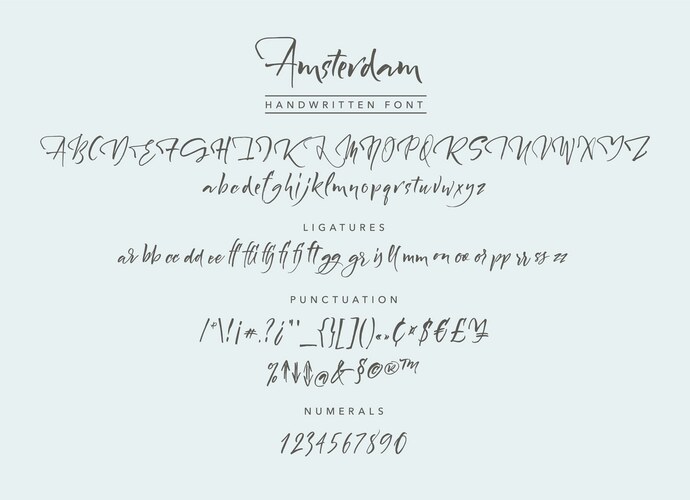 Amsterdam
HANDWRITTEN FONT
ABCDEFGHIJKLMNOPQRSTUVWXYZ
abcdefghijklmnopqrstuvwxyz
LIGATURES
ar bb cc dd ee ff ffi ffj fi fj ft gg gr ij ll mm on oo or pp rr ss zz
PUNCTUATION
/*\!¡#.?¿"'_{}[]()«»¢¤$€£¥
%↑↓⇕@&§©®™
NUMERALS
1234567890